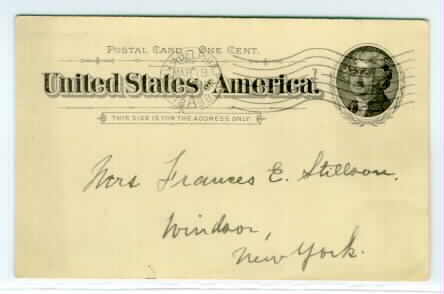 POSTAL CARD - ONE CENT.
United States of America.
THIS SIDE IS FOR THE ADDRESS ONLY.
Mrs Frances E. Stillson.
Windsor,
New York.